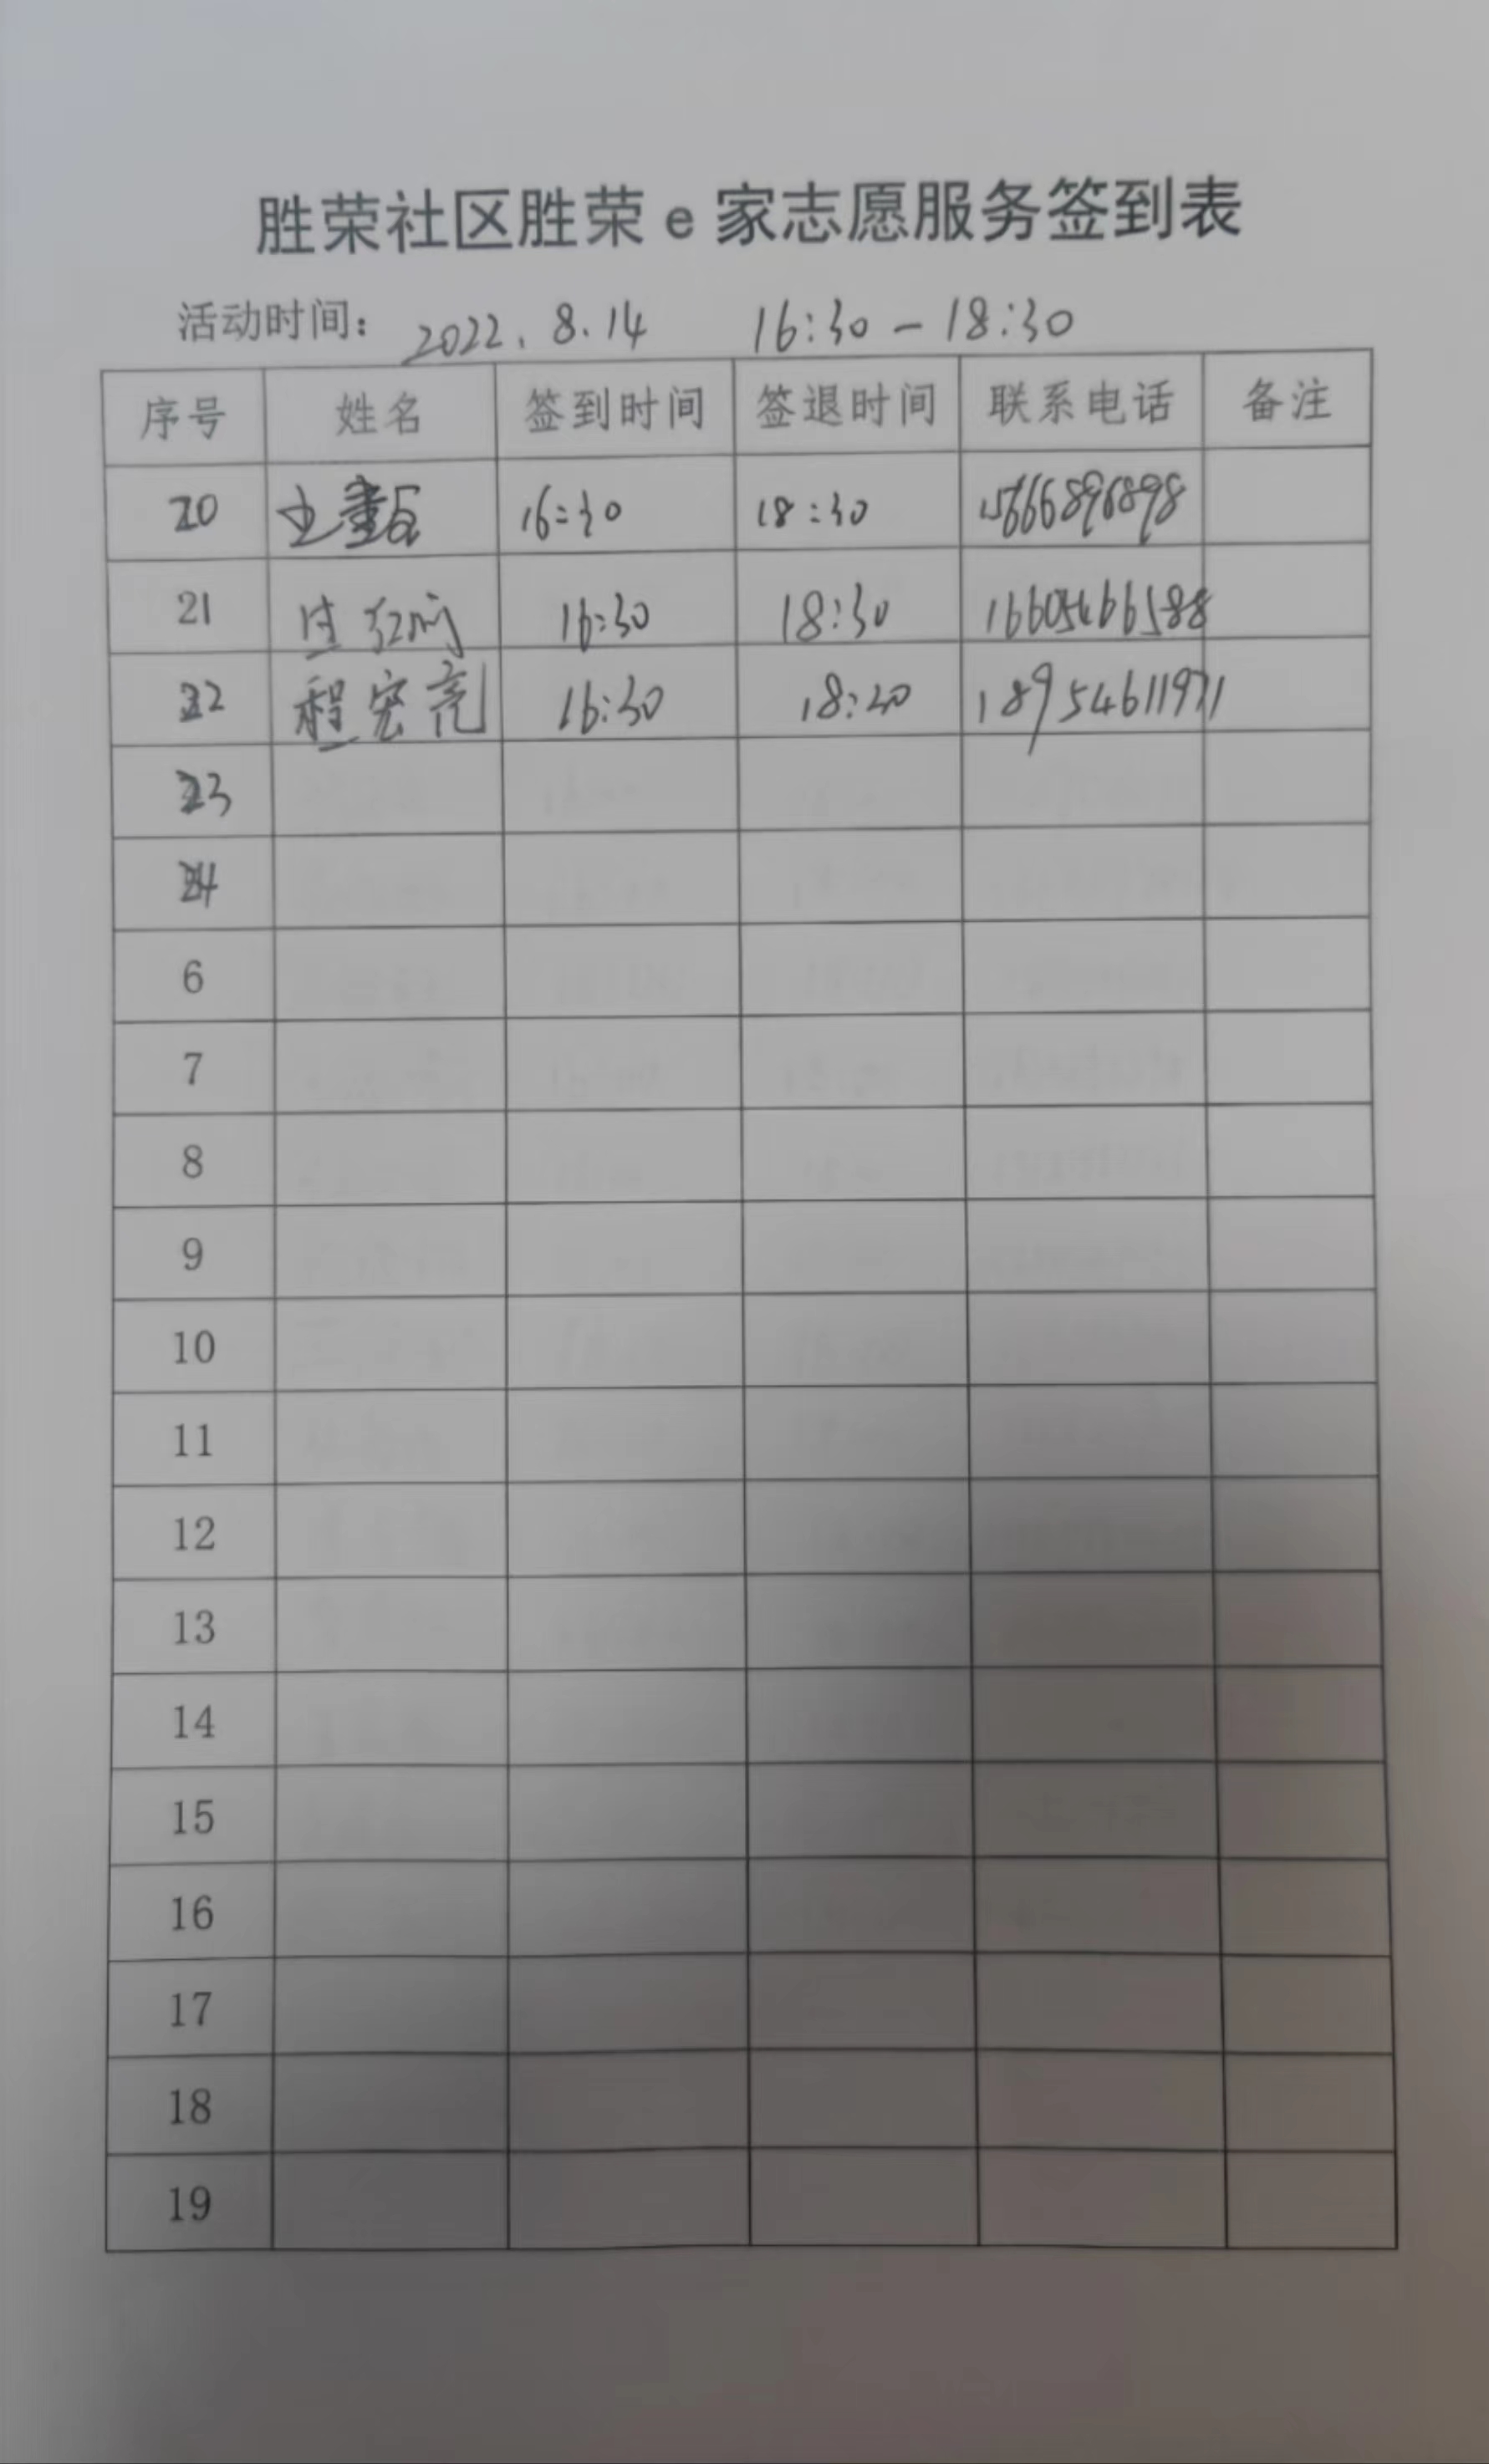 胜荣社区胜荣e家志愿服务签到表
活动时间： 2022.8.14 16:30-18:30
序号 姓名 签到时间 签退时间 联系电话 备注
20 16:30 18:30 15666896898
21 16:30 18:30
22 程宏亮 16:30 18:30 18954611971
23
24
6
7
8
9
10
11
12
13
14
15
16
17
18
19